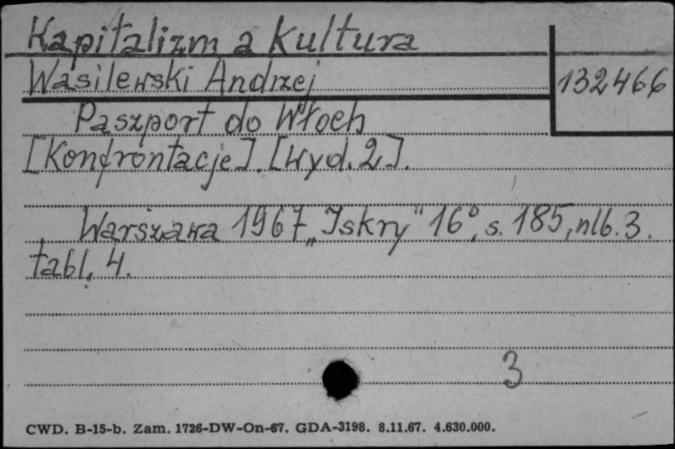 Kapitalizm a kultura
Wasilewski Andrzej
132466
Paszport do Włoch
[Konfrontacje]. [Wyd. 2].
Warszawa 1967 „Iskry" 16°, s. 185, nlb. 3.
tabl. 4.
3
CWD. B-15-b. Zam. 1726-DW-On-67. GDA-3198. 8.11.67. 4.630.000.